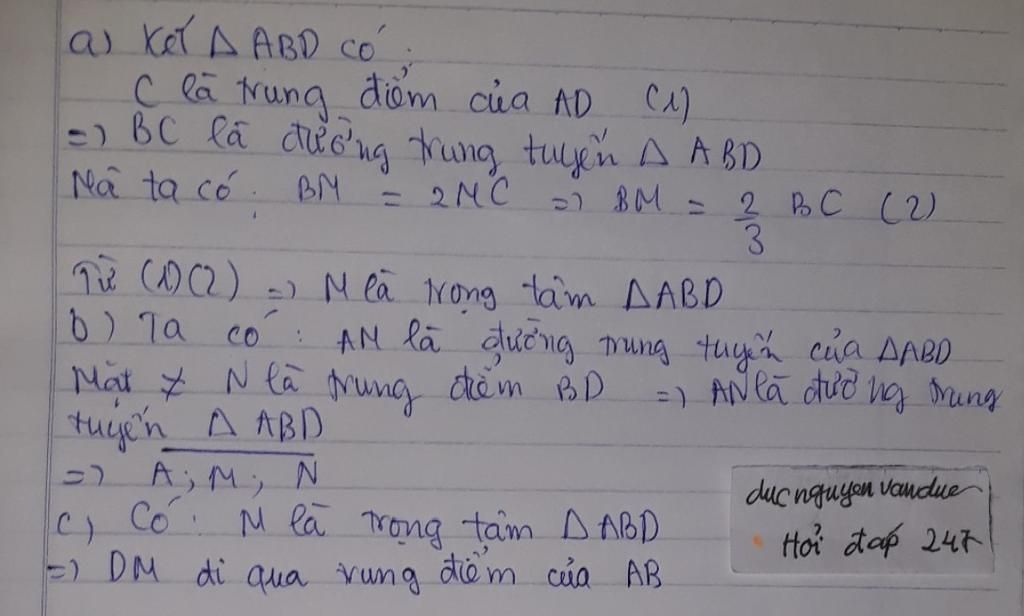 a) Xét Δ ABD có :
C là trung điểm của AD (1)
=> BC là đường trung tuyến Δ ABD
Mà ta có : BM = 2MC => BM = 2/3 BC (2)
Từ (1)(2) => M là trọng tâm ΔABD
b) Ta có : AM là đường trung tuyến của ΔABD
Mặt ≠ N là trung điểm BD => AN là đường trung
tuyến Δ ABD
=> A ; M ; N
c) Có : M là trọng tâm Δ ABD
=> DM đi qua trung điểm của AB
ducnguyenvanduc
• Hỏi đáp 247